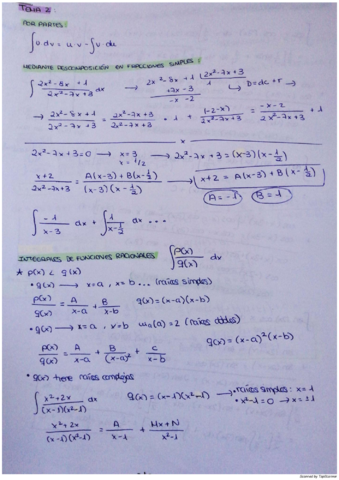 TEMA 2:
POR PARTES:
∫u dv = u·v - ∫v·du
MEDIANTE DESCOMPOSICIÓN EN FRACCIONES SIMPLES:
∫ (2x²-8x+1)/(2x²-7x+3) dx → 2x²-8x+1 |2x²-7x+3
+7x-3 1 → D=d·c+r
-x-2
→ (2x²-8x+1)/(2x²-7x+3) = (2x²-7x+3)/(2x²-7x+3) · 1 + (-2-x)/(2x²-7x+3) = (-x-2)/(2x²-7x+3) + 1
2x²-7x+3=0 → x=3 x=1/2 → 2x²-7x+3 = (x-3)(x-1/2)
(x+2)/(2x²-7x+3) = (A(x-3)+B(x-1/2))/((x-3)(x-1/2)) → x+2 = A(x-3)+B(x-1/2)
A=-1 B=1
∫ -1/(x-3) dx + ∫ 1/(x-1/2) dx ...
INTEGRALES DE FUNCIONES RACIONALES: ∫ p(x)/g(x) dx
* p(x) < g(x)
• g(x) → x=a, x=b ... (raíces simples)
p(x)/g(x) = A/(x-a) + B/(x-b) g(x)=(x-a)(x-b)
• g(x) → x=a, x=b (raíces dobles)
p(x)/g(x) = A/(x-a) + B/(x-a)² + C/(x-b) g(x)=(x-a)²(x-b)
• g(x) tiene raíces complejas
∫ (x²+2x)/((x-1)(x²-1)) dx g(x)=(x-1)(x²-1) → • raíces simples: x=1
• x²-1=0 → x=±1
(x²+2x)/((x-1)(x²-1)) = A/(x-1) + (Mx+N)/(x²-1)